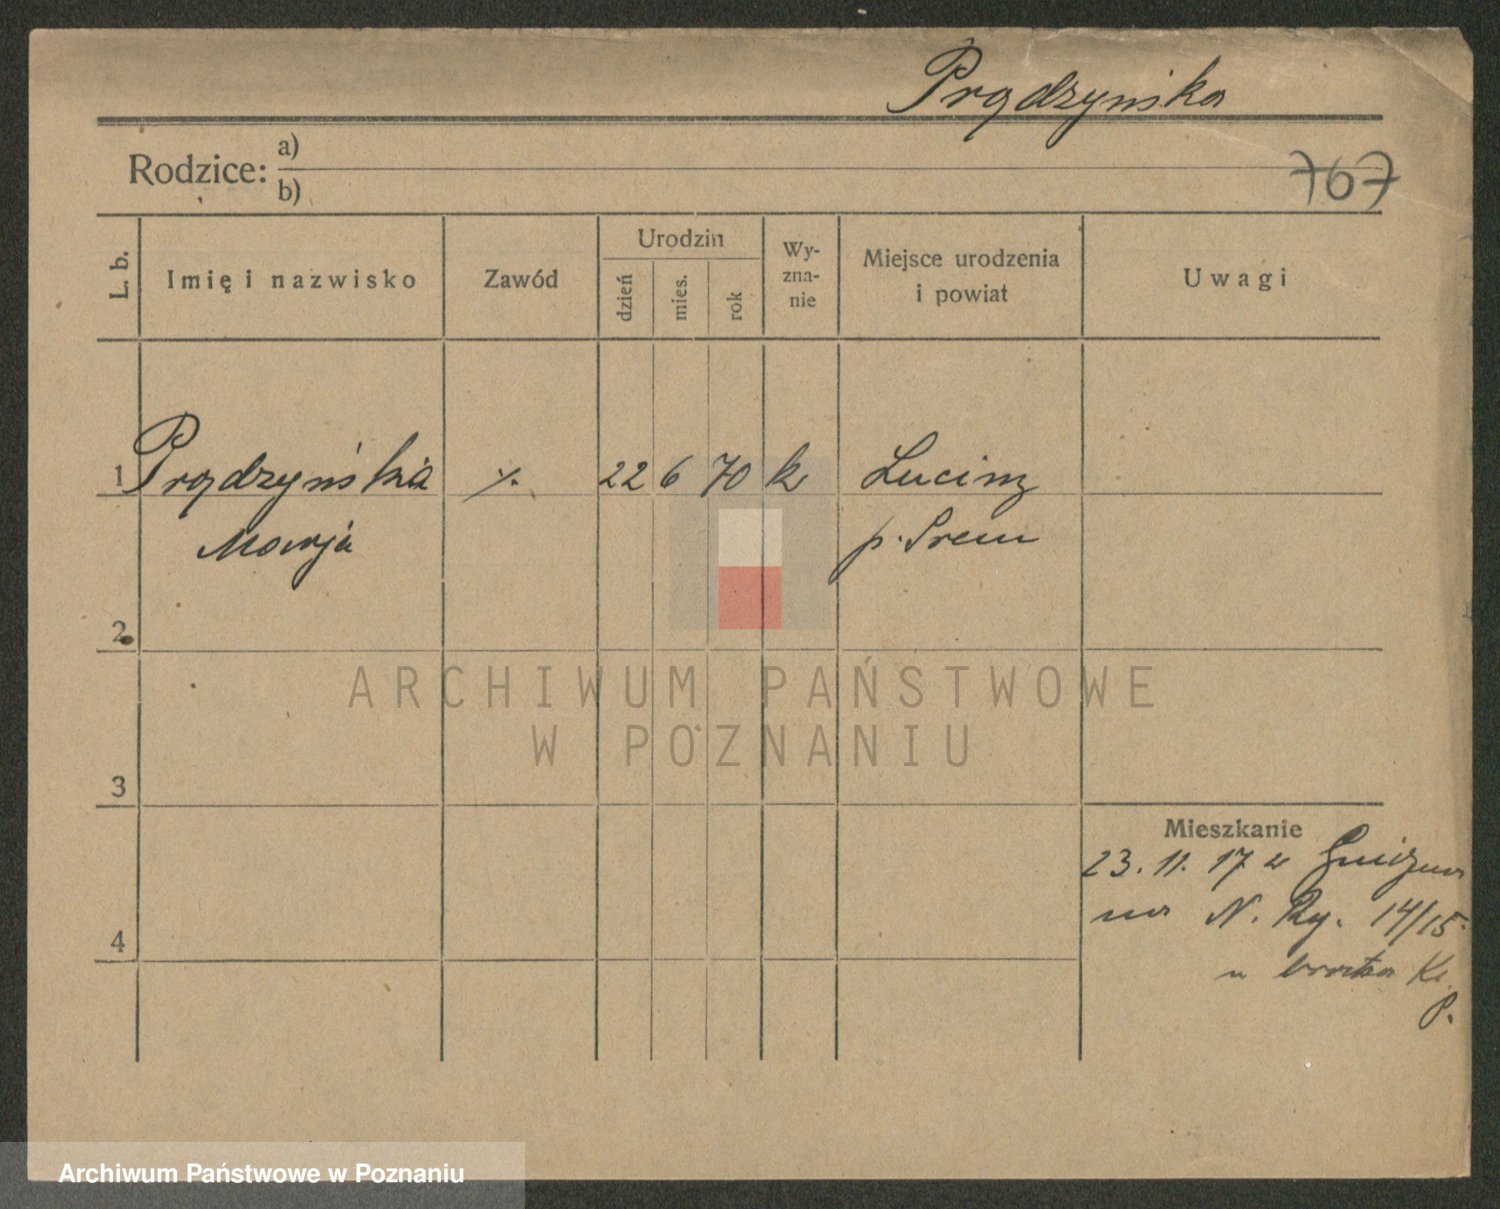 Prądzyńska
Rodzice: a)
b)
767
L. b. Imię i nazwisko Zawód Urodzin dzień mies. rok Wy-zna-nie Miejsce urodzenia i powiat Uwagi
1 Prądzyńska 22 6 70 k Luciny
Marja p. Śrem
2
ARCHIWUM PAŃSTWOWE
W POZNANIU
3
Mieszkanie
23. 11. 17 z Gniezna
na N. Ry. 14/15.
4
u brata
P.
Archiwum Państwowe w Poznaniu